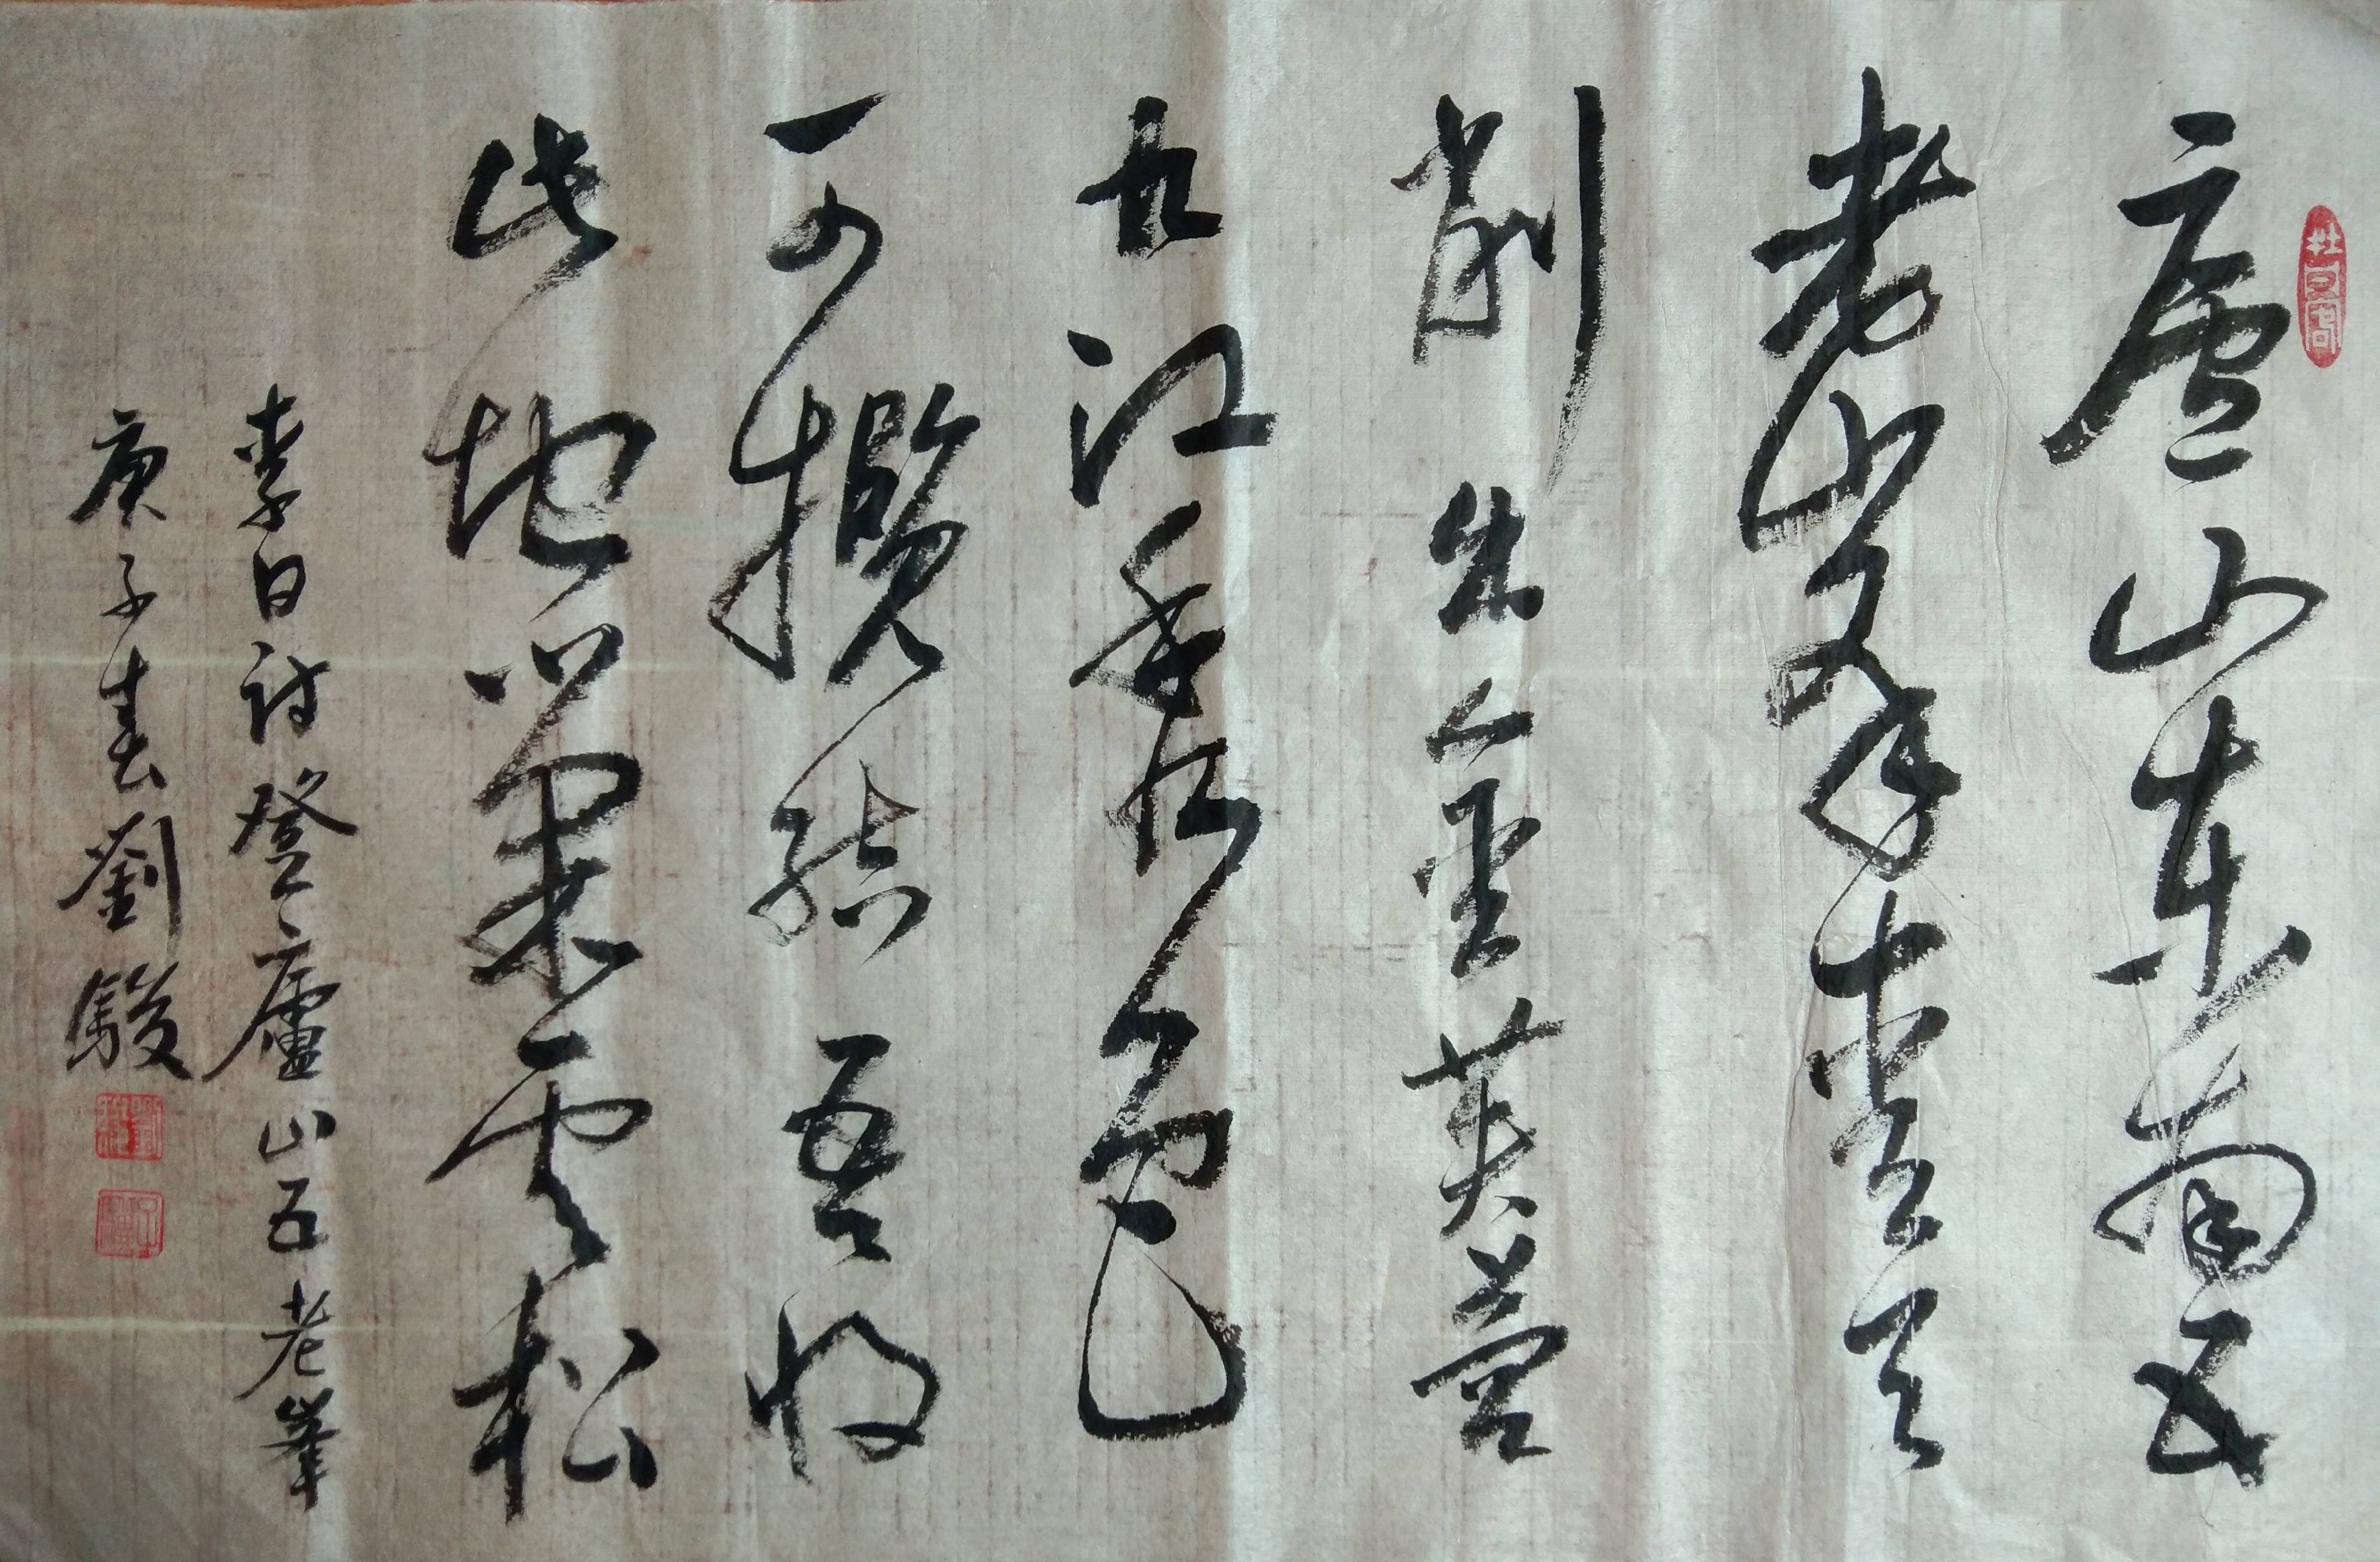 廬山東南五
老峯青天
削出金芙蓉
九江秀色
可攬結吾將
此地巢雲松
李白詩登廬山五老峯
庚子春劉駿